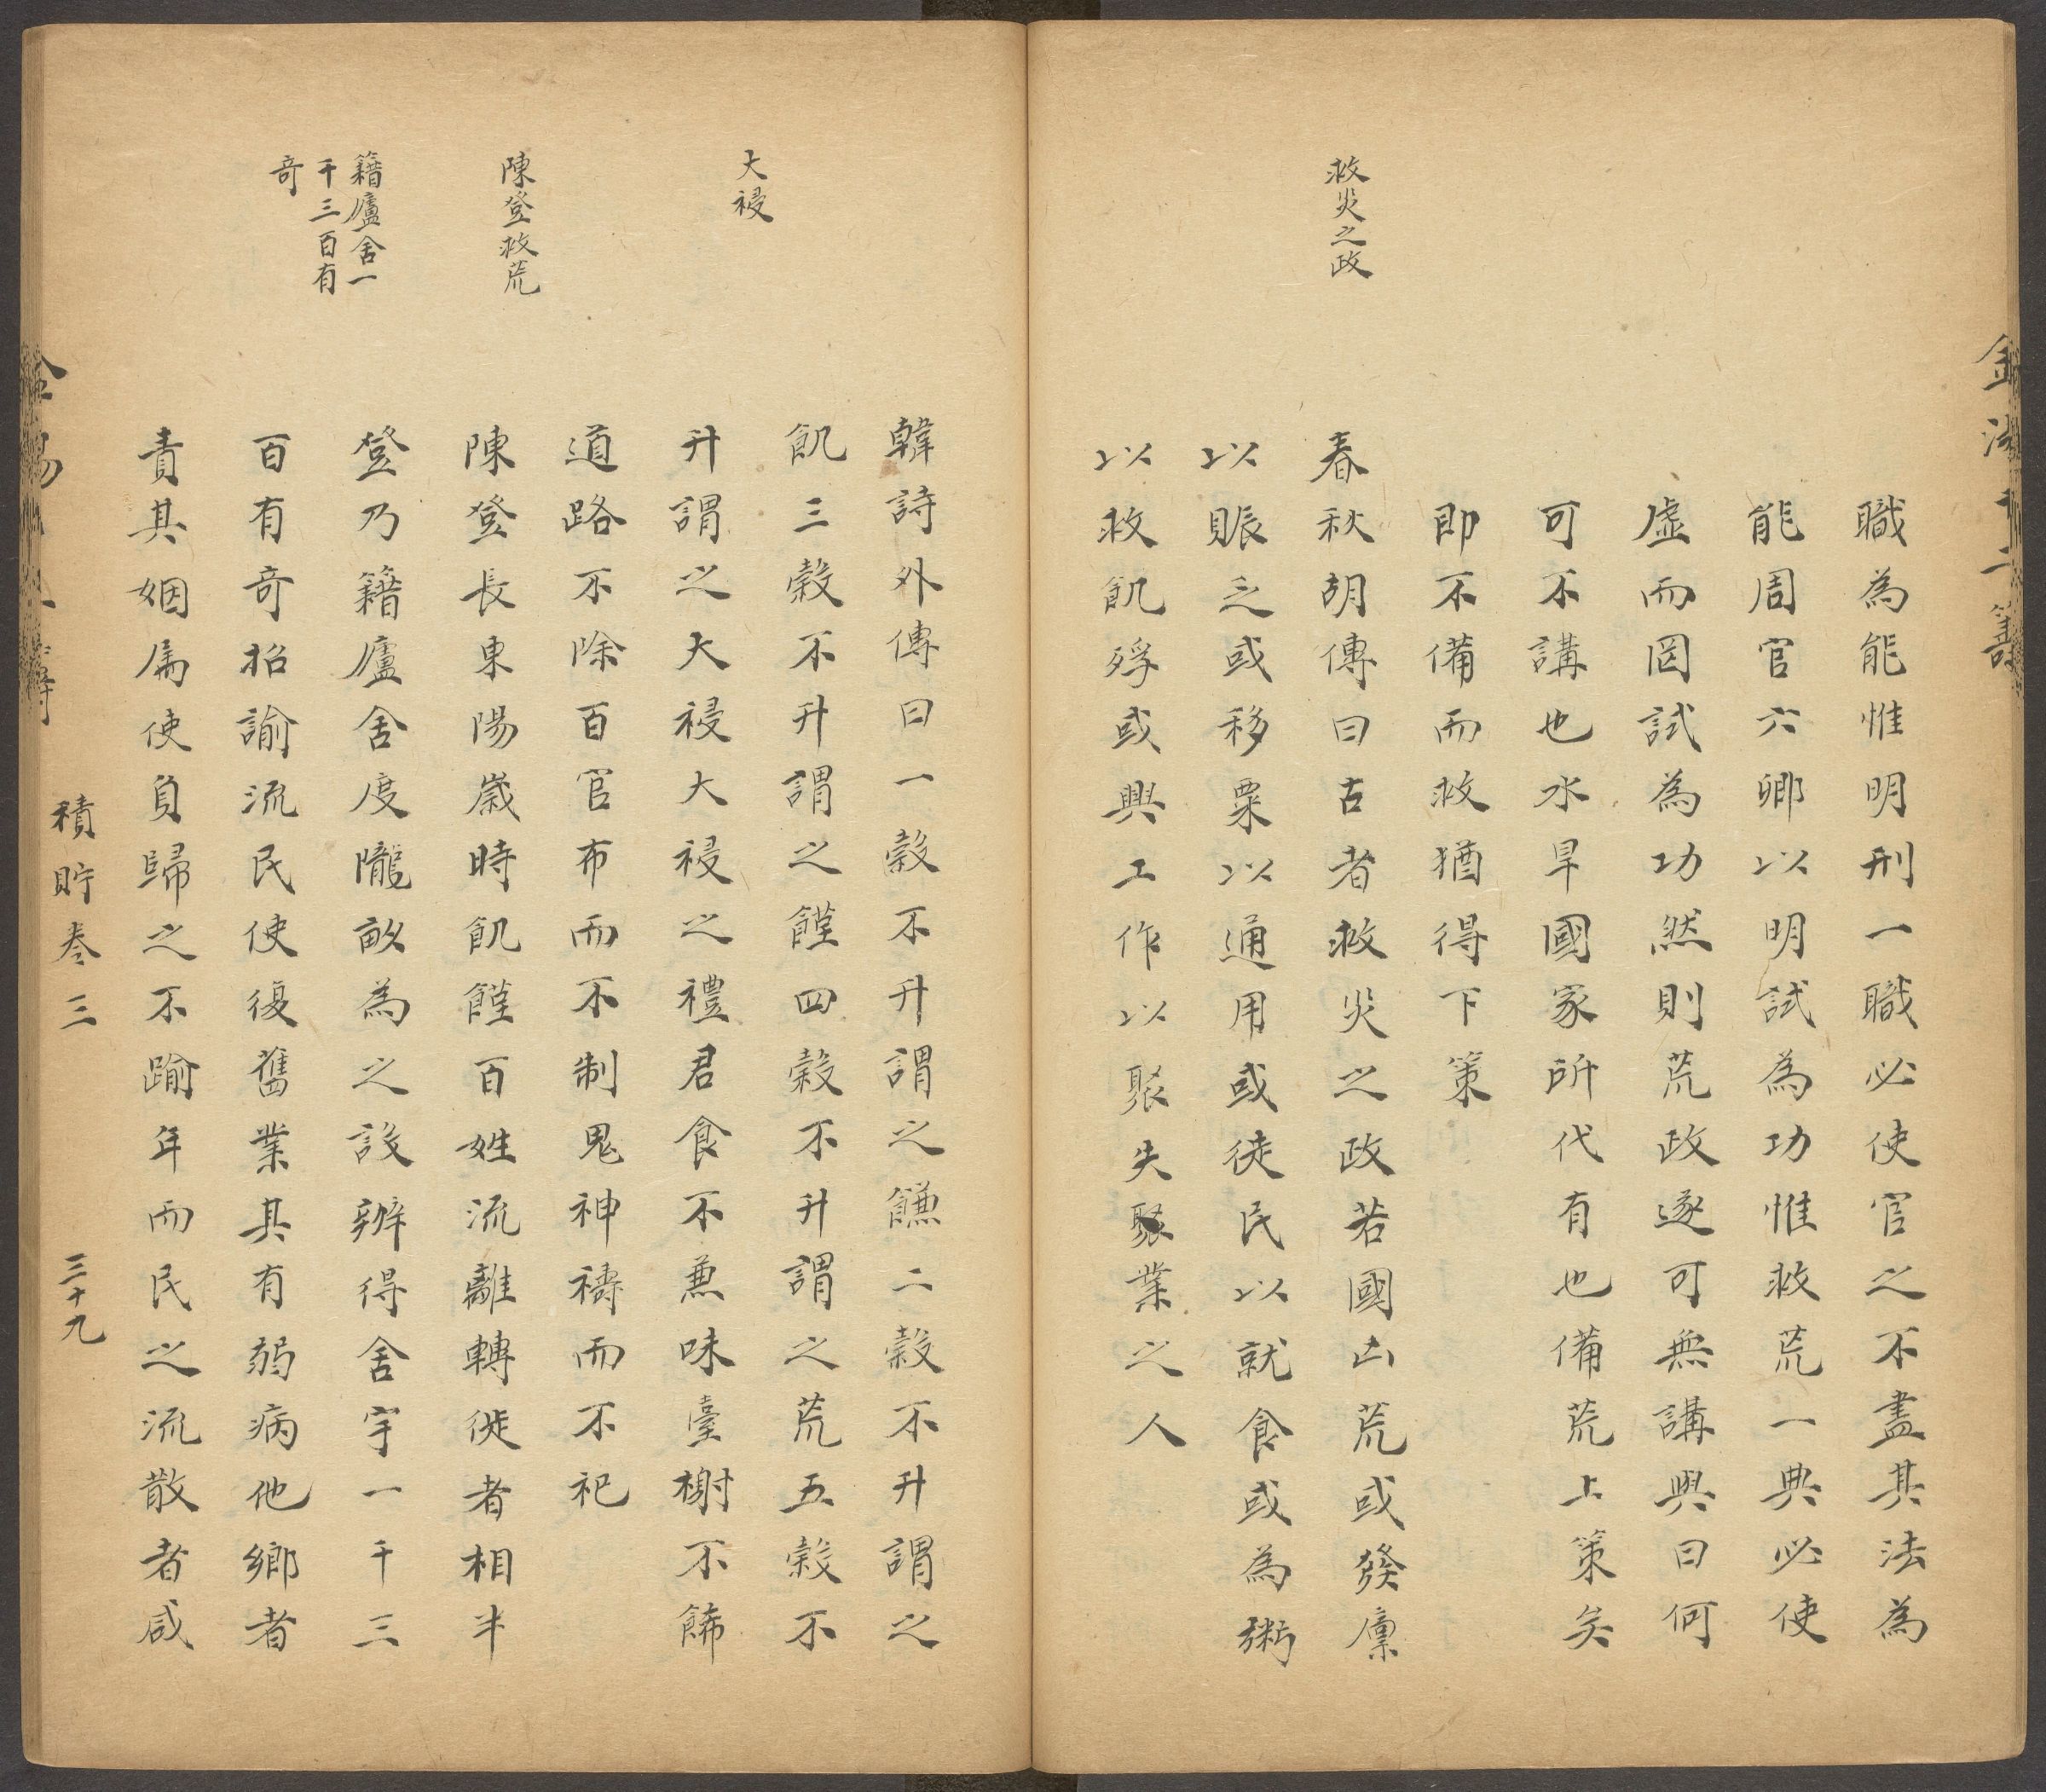 職為能惟明刑一職必使官之不盡其法為
能周官六卿以明試為功惟救荒一典必使
虛而罔試為功然則荒政遂可無講與曰何
可不講也水旱國家所代有也備荒上策矣
即不備而救猶得下策
救災之政
春秋胡傳曰古者救災之政若國凶荒或發廩
以賑之或移粟以通用或徙民以就食或為粥
以救飢殍或興工作以聚失聚業之人
韓詩外傳曰一穀不升謂之饑二穀不升謂之
大祲
飢三穀不升謂之饉四穀不升謂之荒五穀不
升謂之大祲大祲之禮君食不兼味臺榭不飾
道路不除百官布而不制鬼神禱而不祀
陳登救荒
陳登長東陽歲時飢饉百姓流離轉徙者相半
籍廬舍一
千三百有
奇
登乃籍廬舍度隴畝為之設辦得舍宇一千三
百有奇招諭流民使復舊業其有弱病他鄉者
責其姻屬使負歸之不踰年而民之流散者咸
積貯卷三
三十九